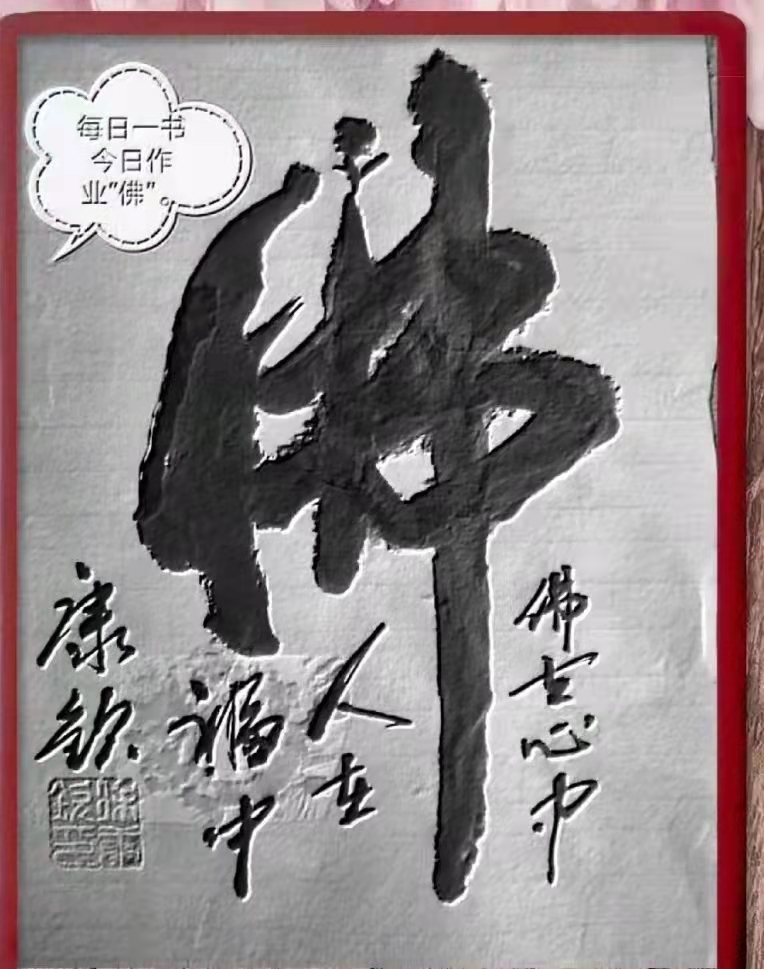 每日一书
今日作
业"佛"。
佛
佛在心中
人在
福中
康钦